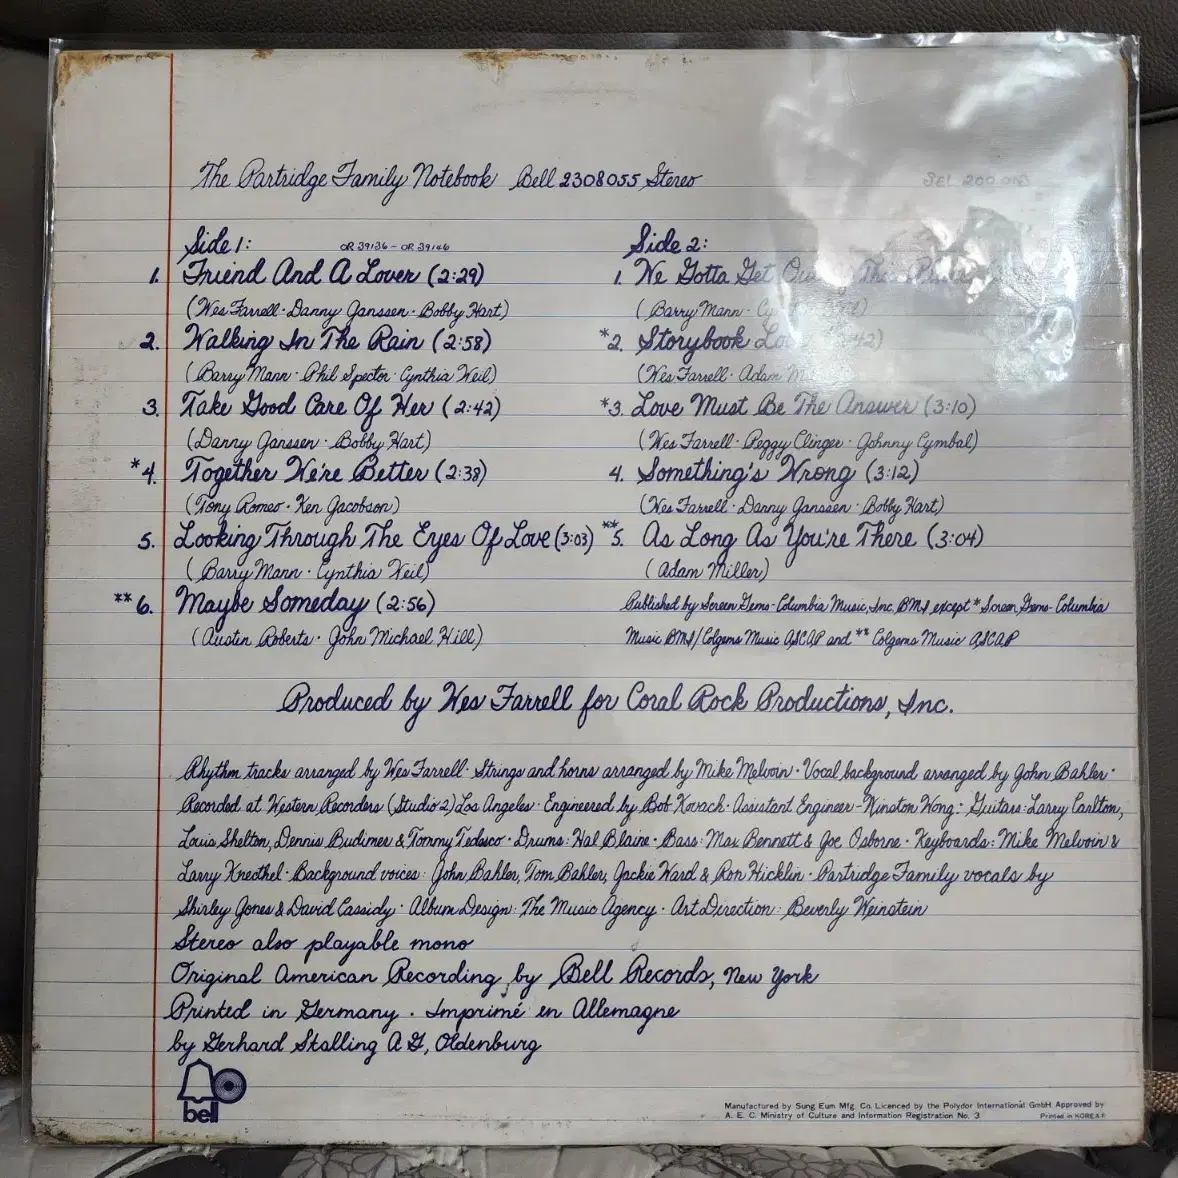 The Partridge Family Notebook Bell 2308055 Stereo
SEL 200 018
Side 1: OR 39136 - OR 39146
1. Friend And A Lover (2:29)
(Wes Farrell · Danny Janssen · Bobby Hart)
2. Walking In The Rain (2:58)
(Barry Mann · Phil Spector · Cynthia Weil)
3. Take Good Care Of Her (2:42)
(Danny Janssen · Bobby Hart)
*4. Together We're Better (2:38)
(Tony Romeo · Ken Jacobson)
5. Looking Through The Eyes Of Love (3:03)
(Barry Mann · Cynthia Weil)
**6. Maybe Someday (2:56)
(Austin Roberts · John Michael Hill)
Side 2:
1. We Gotta Get Out This
(Barry Mann ·
*2. Storybook
(Wes Farrell · Adam
*3. Love Must Be The Answer (3:10)
(Wes Farrell · Peggy Clinger · Johnny Cymbal)
4. Something's Wrong (3:12)
(Wes Farrell · Danny Janssen · Bobby Hart)
**5. As Long As You're There (3:04)
(Adam Miller)
Published by Screen Gems-Columbia Music, Inc. BMI, except * Screen Gems-Columbia
Music BMI/Colgems Music ASCAP and ** Colgems Music ASCAP
Produced by Wes Farrell for Coral Rock Productions, Inc.
Rhythm tracks arranged by Wes Farrell · Strings and horns arranged by Mike Melvoin · Vocal background arranged by John Bahler ·
Recorded at Western Recorders (Studio 2) Los Angeles · Engineered by Bob Kovach · Assistant Engineer - Winston Wong : Guitars: Larry Carlton,
Louis Shelton, Dennis Budimer & Tommy Tedesco · Drums: Hal Blaine · Bass: Max Bennett & Joe Osborne · Keyboards: Mike Melvoin &
Larry Knechel · Background voices: John Bahler, Tom Bahler, Jackie Ward & Ron Hicklin · Partridge Family vocals by
Shirley Jones & David Cassidy · Album Design: The Music Agency · Art Direction: Beverly Weinstein
Stereo also playable mono
Original American Recording by Bell Records, New York
Printed in Germany . Imprimé en Allemagne
by Gerhard Stalling AG, Oldenburg
bell
Manufactured by Sung Eum Mfg. Co. Licenced by the Polydor International GmbH. Approved by
A. E. C. Ministry of Culture and Information Registration No. 3 Printed in KOREA